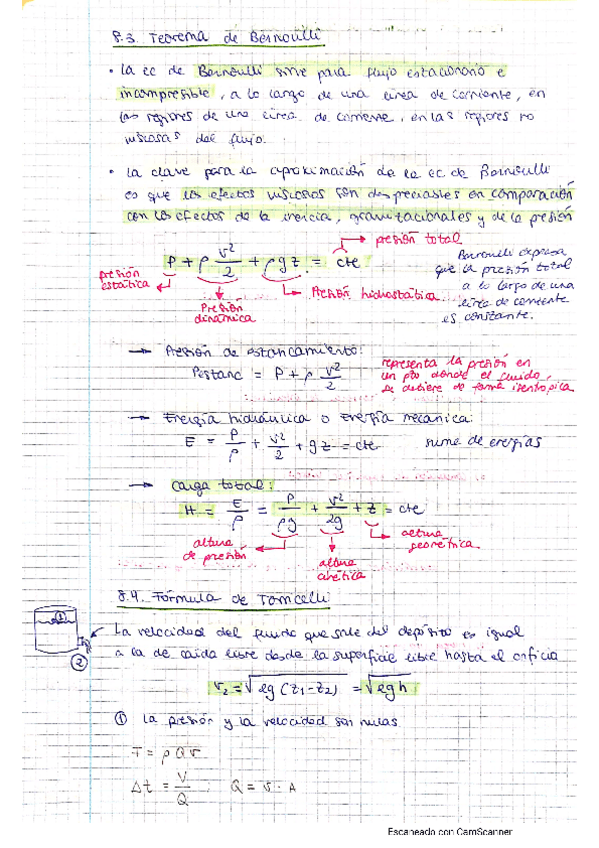 8.3. Teorema de Bernoulli
• La ec de Bernoulli sirve para flujo estacionario e
incompresible, a lo largo de una línea de corriente, en
las regiones de una línea de corriente, en las regiones no
viscosas del flujo.
• La clave para la aproximación de la ec de Bernoulli
es que los efectos viscosos son despreciables en comparación
con los efectos de la inercia, gravitacionales y de la presión
presión total
P + ρ v²/2 + ρgz = cte
presión estática
Presión dinámica
Presión hidrostática
Bernoulli expresa
que la presión total
a lo largo de una
línea de corriente
es constante.
→ Presión de estancamiento:
Pestanc = P + ρ v²/2
representa la presión en
un pto donde el fluido,
se detiene de forma isentrópica
→ Energía hidráulica o Energía mecánica:
E = P/ρ + v²/2 + gz = cte
suma de energías
→ Carga total:
H = E/ρ = P/ρg + v²/2g + z = cte
altura de presión
altura cinética
altura geométrica
8.4. Fórmula de Torricelli
①
②
La velocidad del fluido que sale del depósito es igual
a la de caída libre desde la superficie libre hasta el orificio
v₂ = √2g (z₁-z₂) = √2gh
① La presión y la velocidad son nulas.
F = ρQv
Δt = V/Q , Q = v · A
Escaneado con CamScanner